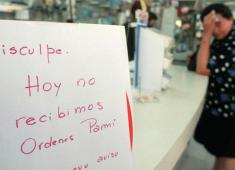 isculpe.
Hoy no
recibimos
Ordenes Pami
nuevo aviso